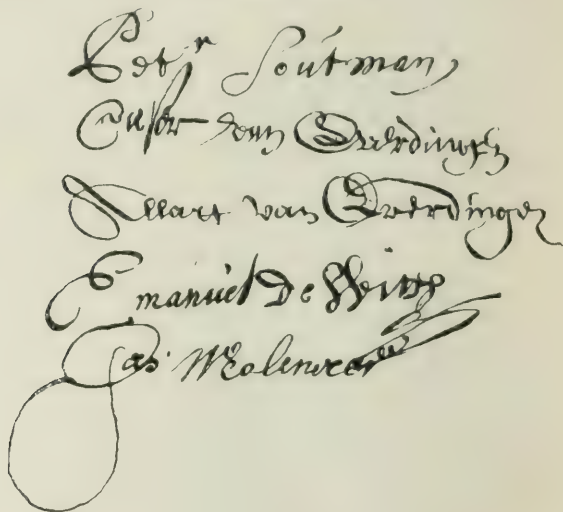 Petr Soutman
Cesar van Everdingen
Allart van Everdingen
Emanuel De Witte
Jan Molenaer